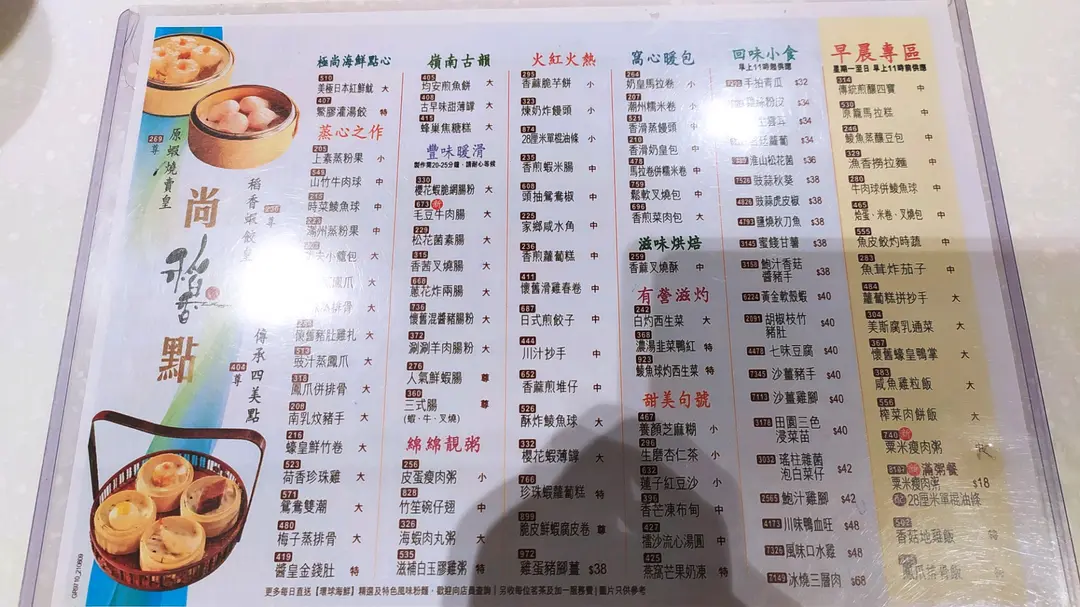 269
尊
原蝦燒賣皇
尚
點
稻香蝦餃皇
尊
404
尊
傳承四美點
GRB710_210609
極尚海鮮點心
510
美極日本紅魷鬚 大
407
鱉膠灌湯餃 特
蒸心之作
205
上素蒸粉果 小
545
山竹牛肉球 中
時菜鯪魚球 中
潮州蒸粉果 中
大
大
大
懷舊豬肚雞扎 大
513
豉汁蒸鳳爪 大
318
鳳爪併排骨 大
208
南乳炆豬手 大
216
蠔皇鮮竹卷 大
523
荷香珍珠雞 大
571
鴛鴦雙潮 大
480
梅子蒸排骨 大
419
醬皇金錢肚 特
嶺南古韻
405
均安煎魚餅 大
408
古早味甜薄罉 大
415
蜂巢焦糖糕 大
豐味暖滑
製作需20-25分鐘，請耐心等候
330
櫻花蝦脆網腸粉 大
673 新
毛豆牛肉腸 大
229
松花菌素腸 大
315
香茜叉燒腸 大
668
蔥花炸兩腸 大
736
懷舊混醬豬腸粉 大
372
涮涮羊肉腸粉 大
276
人氣鮮蝦腸 尊
360
三式腸 尊
(蝦·牛·叉燒)
綿綿靚粥
256
皮蛋瘦肉粥 小
828
竹笙碗仔翅 中
326
海蝦肉丸粥 大
535
滋補白玉膠雞粥 特
火紅火熱
299
香蔴脆芋餅 小
323
煉奶炸饅頭 小
874
28厘米單棍油條 小
235
香煎蝦米腸 中
608
頭抽鴛鴦椒 中
225
家鄉咸水角 中
236
香煎蘿蔔糕 中
411
懷舊滑雞春卷 中
687
日式煎餃子 中
444
川汁抄手 中
652
香蔴煎堆仔 中
526
酥炸鯪魚球 大
332
櫻花蝦薄罉 大
766
珍珠蝦蘿蔔糕 特
899
脆皮鮮蝦腐皮卷 尊
972
雞蛋豬腳薑 $38
窩心暖包
264
奶皇馬拉卷 小
207
潮州糯米卷 小
521
香滑蒸饅頭 小
210
香滑奶皇包 中
478
馬拉卷併糯米卷 中
759
鬆軟叉燒包 中
696
香煎菜肉包 大
滋味烘焙
259
香蔴叉燒酥 中
有營滋灼
242
白灼西生菜 大
368
濃湯韭菜鴨紅 特
923
鯪魚球灼西生菜 特
甜美句號
467
養顏芝麻糊 小
296
生磨杏仁茶 小
632
蓮子紅豆沙 小
396
香芒凍布甸 中
427
擂沙流心湯圓 中
425
燕窩芒果奶凍 特
回味小食
早上11時起供應
手拍青瓜 $32
粉皮 $34
$34
蘿蔔 $34
淮山松花菌 $36
7526 豉蒜秋葵 $38
4826 豉蒜虎皮椒 $38
4793 鹽燒秋刀魚 $38
3145 蜜餞甘薯 $38
3158 鮑汁香菇
醬豬手 $38
8228 黃金軟殼蝦 $40
2091 胡椒枝竹
豬肚 $40
4478 七味豆腐 $40
7345 沙薑豬手 $40
7113 沙薑雞腳 $40
3178 田園三色
浸菜苗 $40
3032 瑤柱雜菌
泡白菜仔 $42
2565 鮑汁雞腳 $42
4173 川味鴨血旺 $48
7326 風味口水雞 $48
7149 冰燒三層肉 $68
早晨專區
星期一至日 早上11時前供應
314
傳統煎釀四寶 中
530
原籠馬拉糕 中
246
鯪魚蒸釀豆包 中
329
漁香撈拉麵 中
280
牛肉球併鯪魚球 中
465
燴蛋·米卷·叉燒包 中
555
魚皮餃灼時蔬 中
283
魚茸炸茄子 中
484
蘿蔔糕拼抄手 大
304
美斯腐乳通菜 大
367
懷舊蠔皇鴨掌 大
383
咸魚雞粒飯 大
556
榨菜肉餅飯 大
740 新
粟米瘦肉粥 中
滿粥餐
粟米瘦肉粥 $18
配 28厘米單棍油條
502
香菇地雞飯 特
鳳爪排骨飯 特
更多每日直送【環球海鮮】精選及特色風味粉麵，歡迎向店員查詢 | 另收每位茗茶及加一服務費 | 圖片只供參考